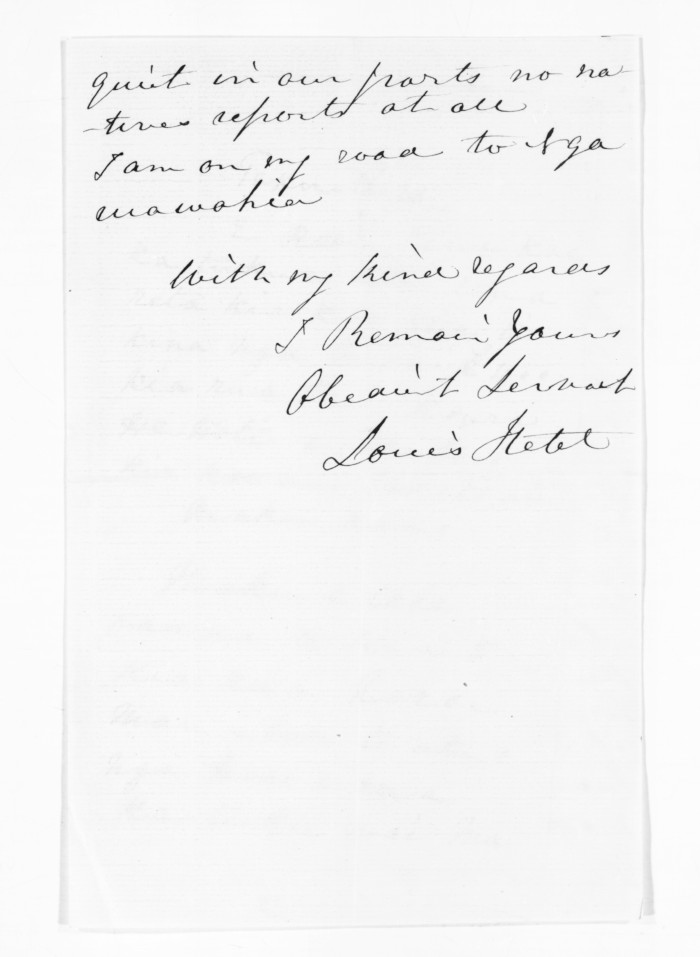 quiet in our parts no na-
-tives reports at all
I am on my road to Nga
ruawahia
With my kind regards
I Remain Yours
Obedient Servant
Louis Hetet